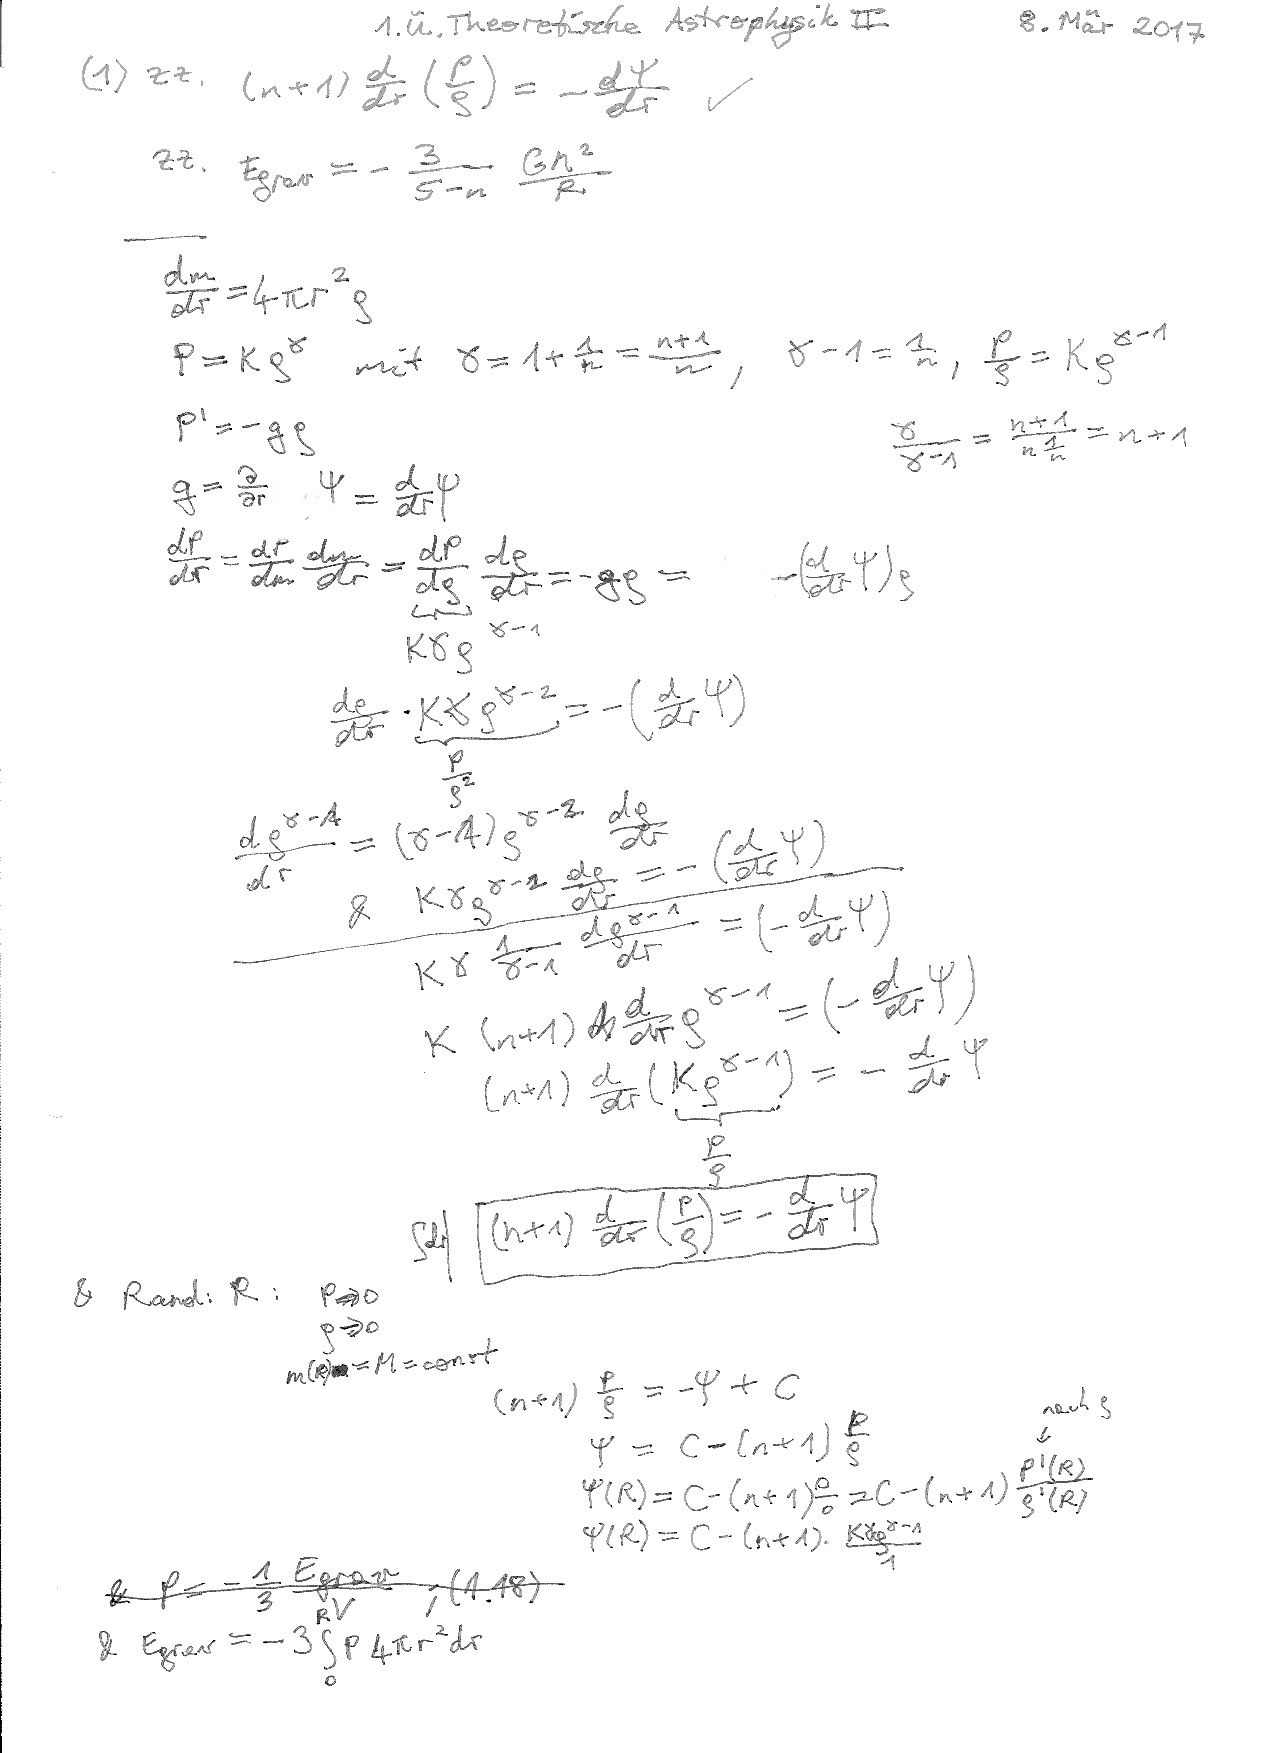 1. Ü. Theoretische Astrophysik II 8. Mär 2017
(1) zz. (n+1) d/dr (P/ρ) = - dΨ/dr ✓
zz. Egrav = - 3/(5-n) GM²/R
dm/dr = 4πr²ρ
P = Kρ^γ mit γ = 1 + 1/n = (n+1)/n, γ-1 = 1/n, P/ρ = Kρ^(γ-1)
P' = -gρ γ/(γ-1) = (n+1)/(n 1/n) = n+1
g = ∂/∂r Ψ = d/dr Ψ
dP/dr = dP/dm dm/dr = dP/dρ dρ/dr = -gρ = -(d/dr Ψ)ρ
Kγρ^(γ-1)
dρ/dr · Kγρ^(γ-2) = -(d/dr Ψ)
P/ρ²
dρ^(γ-1)/dr = (γ-1)ρ^(γ-2) dρ/dr
& Kγρ^(γ-2) dρ/dr = -(d/dr Ψ)
Kγ 1/(γ-1) dρ^(γ-1)/dr = (-d/dr Ψ)
K (n+1) d/dr ρ^(γ-1) = (-d/dr Ψ)
(n+1) d/dr (Kρ^(γ-1)) = - d/dr Ψ
P/ρ
∫dr| (n+1) d/dr (P/ρ) = - d/dr Ψ
& Rand: R: P→0
ρ→0
m(R) = M = const
(n+1) P/ρ = -Ψ + C
nach ρ
↓
Ψ = C - (n+1) P/ρ
Ψ(R) = C - (n+1) 0/0 = C - (n+1) P'(R)/ρ'(R)
Ψ(R) = C - (n+1) · Kγρ^(γ-1)/1
& P = - 1/3 Egrav/V, (1.18)
& Egrav = -3 ∫₀^R P 4πr² dr